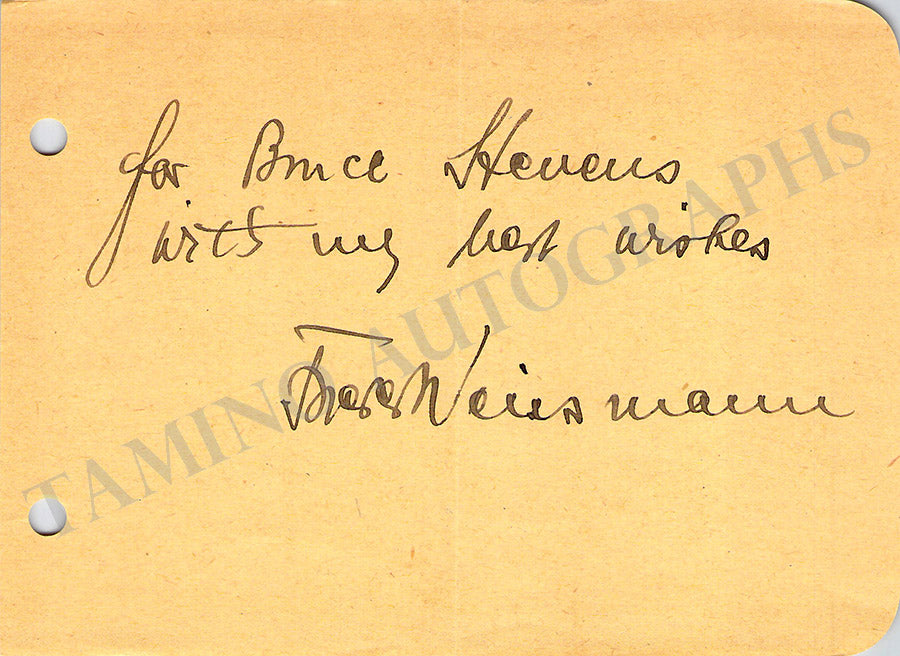 for Bruce Stevens
with my best wishes
Frieder Weissmann
TAMINO AUTOGRAPHS